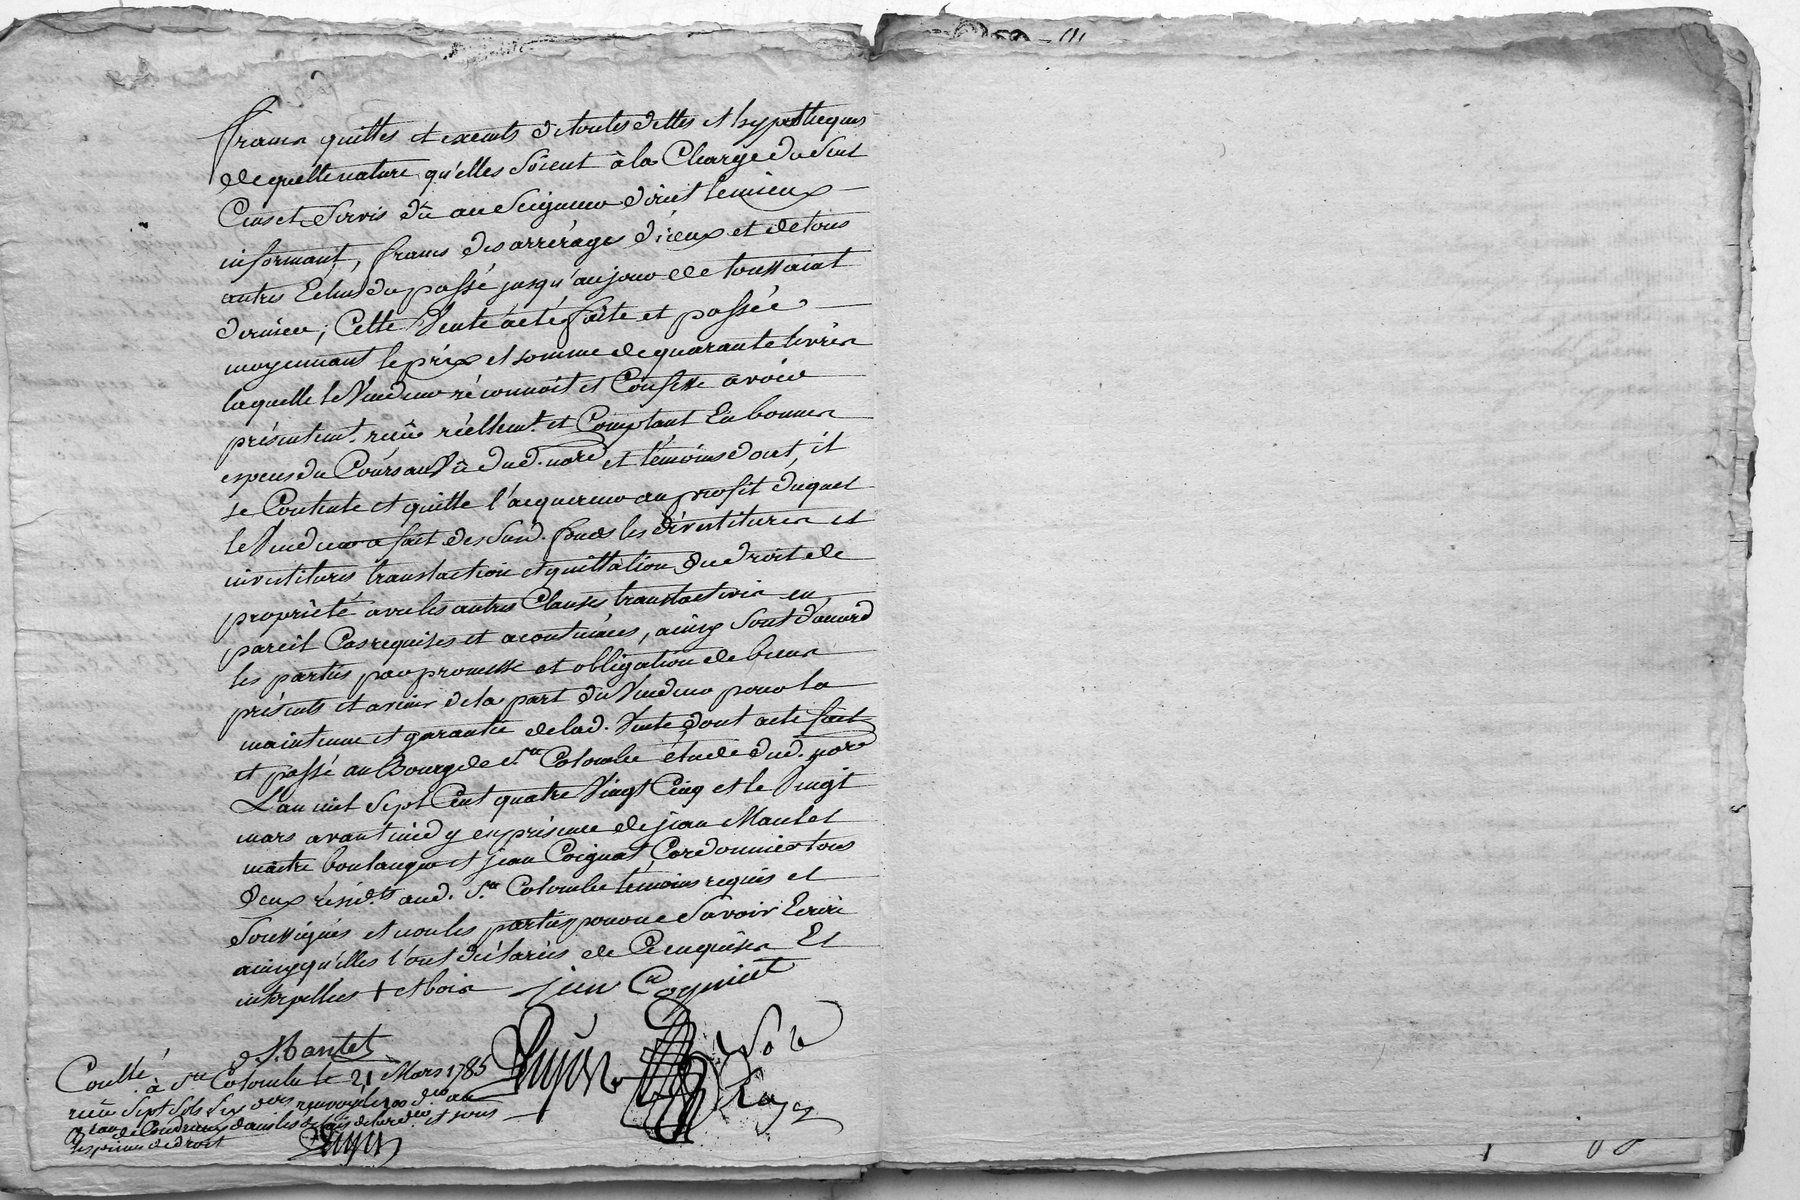 francs quittes et exemts de toutes dettes et hypotheques
de quelle nature qu'elles soient à la Charge du seul
Cens et servis dû au seigneur direct le mieux
informant, francs des arrérages d'iceux et de tous
autres Echus du passé jusqu'au jour de toussaint
dernier; Cette Vente a été faite et passée
moyennant le prix et somme de quarante livres
laquelle le Vendeur réconnoit et Confesse avoir
présentemt. reçüe réellemt. et Comptant En bonnes
especes du Cours au Vû dud. nore et témoins dont, il
se Contente et quitte l'acquereur au profit duquel
le Vendeur a fait des susd. fonds les dévestitures et
investitures translaction et quittation du droit de
proprieté avec les autres Clauses translatives en
pareil Cas requises et acoutumées, ainsy sont d'accord
les parties par promesse et obligation de biens
présents et avenir de la part du Vendeur pour la
maintenue et garantie de lad. Vente dont acte fait
et passé au Bourg de Ste Colombe étude dud. nore
L'an mil sept Cent quatre Vingt Cinq et le Vingt
mars avant midy en présence de jean Mantel
maitre boulanger et jean Coignat Cordonnier tous
deux résid.ts aud. Ste Colombe témoins requis et
soussignés et non les parties pour ne savoir Ecrire
ainsy qu'elles l'ont déclarées de Ce enquises Et
interpellées + et bois jean Cogniat
Mantel
Controllé à Ste Colombe le 21 Mars 1785
reçu sept sols six drs renvoyé le 100 dr au
Bau de Condrieu dans les delais de lard. et sous
les peines de droit